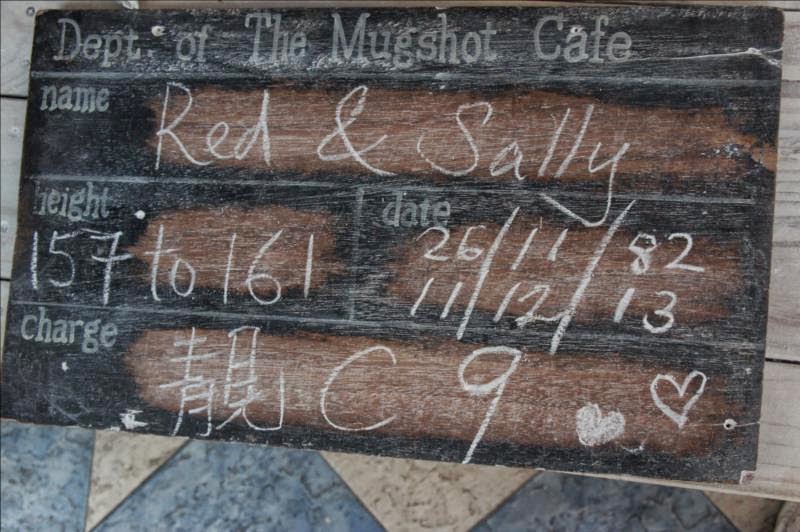 Dept. of The Mugshot Cafe
name
Red & Sally
height
157 to 161
date
26/11/82
11/12/13
charge
靚 C 9